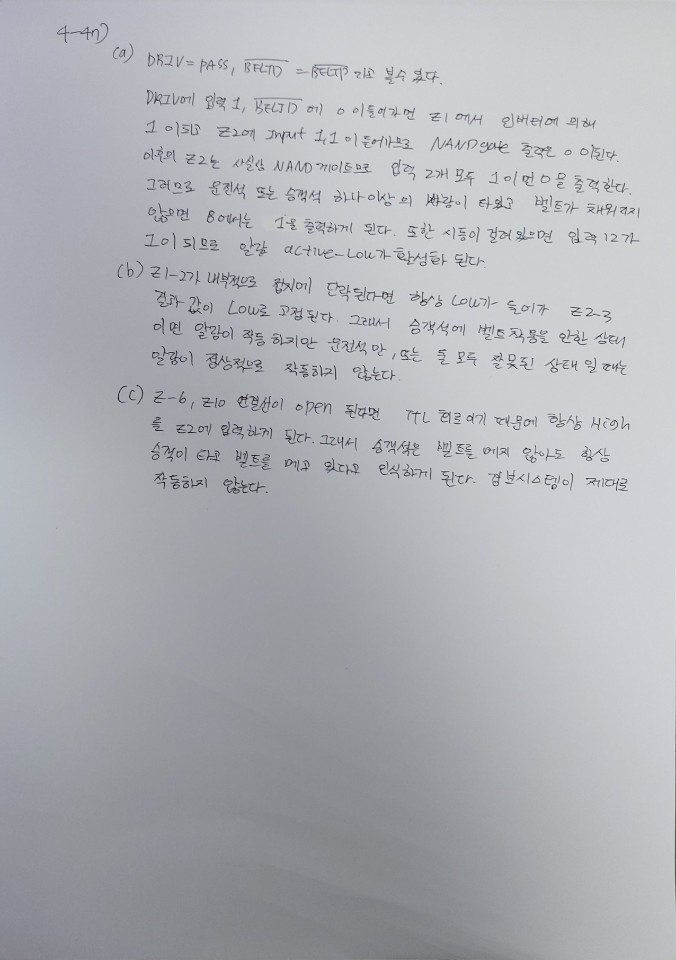 4-47)
(a) DRIV = PASS, BELTD = BELTP 라고 볼수 있다.
DRIV에 입력 1, BELTD 에 0 이 들어가면 Z1 에서 인버터에 의해
1 이되고 Z2에 Input 1,1 이 들어가므로 NAND gate 출력은 0 이된다.
이후의 Z2는 사실상 NAND 게이트므로 입력 2개 모두 1 이면 0 을 출력한다.
그러므로 운전석 또는 승객석 하나이상의 사람이 타있고 벨트가 채워져있지
않으면 8에서는 1을 출력하게 된다. 또한 시동이 걸려 있으면 입력 12가
1 이 되므로 알람 active-Low가 활성화 된다.
(b) Z1-2가 내부적으로 접지에 단락된다면 항상 Low가 들어가 Z2-3
결과 값이 Low로 고정된다. 그래서 승객석에 벨트착용을 안한 상태
이면 알람이 작동 하지만 운전석만, 또는 둘 모두 잘못된 상태 일 때는
알람이 정상적으로 작동하지 않는다.
(c) Z-6, Z10 연결선이 open 된다면 TTL 회로이기 때문에 항상 High
를 Z2에 입력하게 된다. 그래서 승객석은 벨트를 메지 않아도 항상
승객이 타고 벨트를 메고 있다고 인식하게 된다. 경보시스템이 제대로
작동하지 않는다.